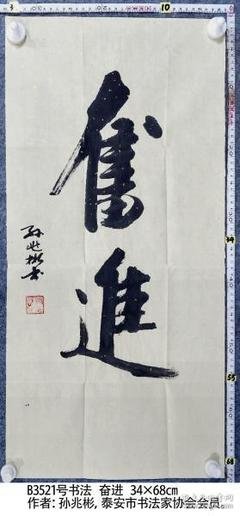 奮進
孙兆彬书
B3521号书法 奋进 34×68cm
作者: 孙兆彬, 泰安市书法家协会会员,